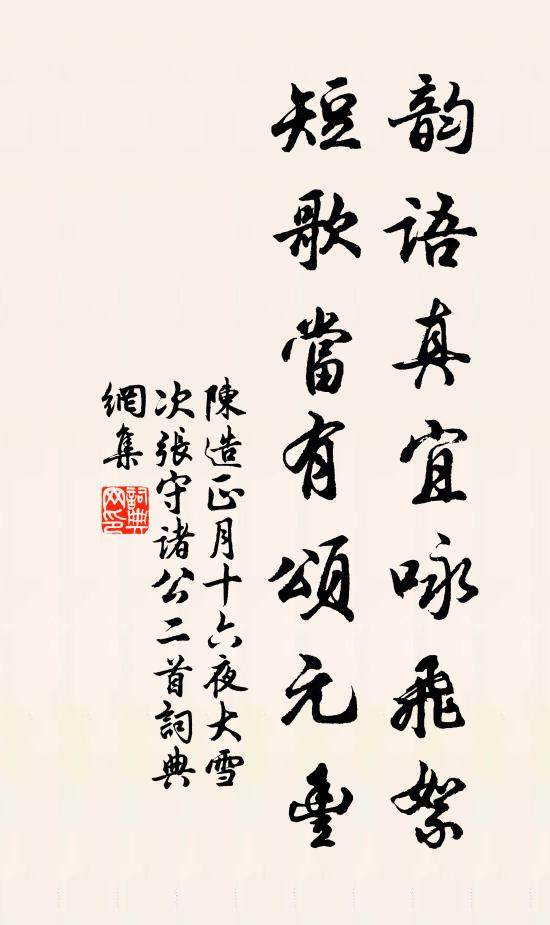 韵語真宜咏飛絮
短歌當有頌元豐
陳造正月十六夜大雪
次張守諸公二首詞典
網集
詞典網印